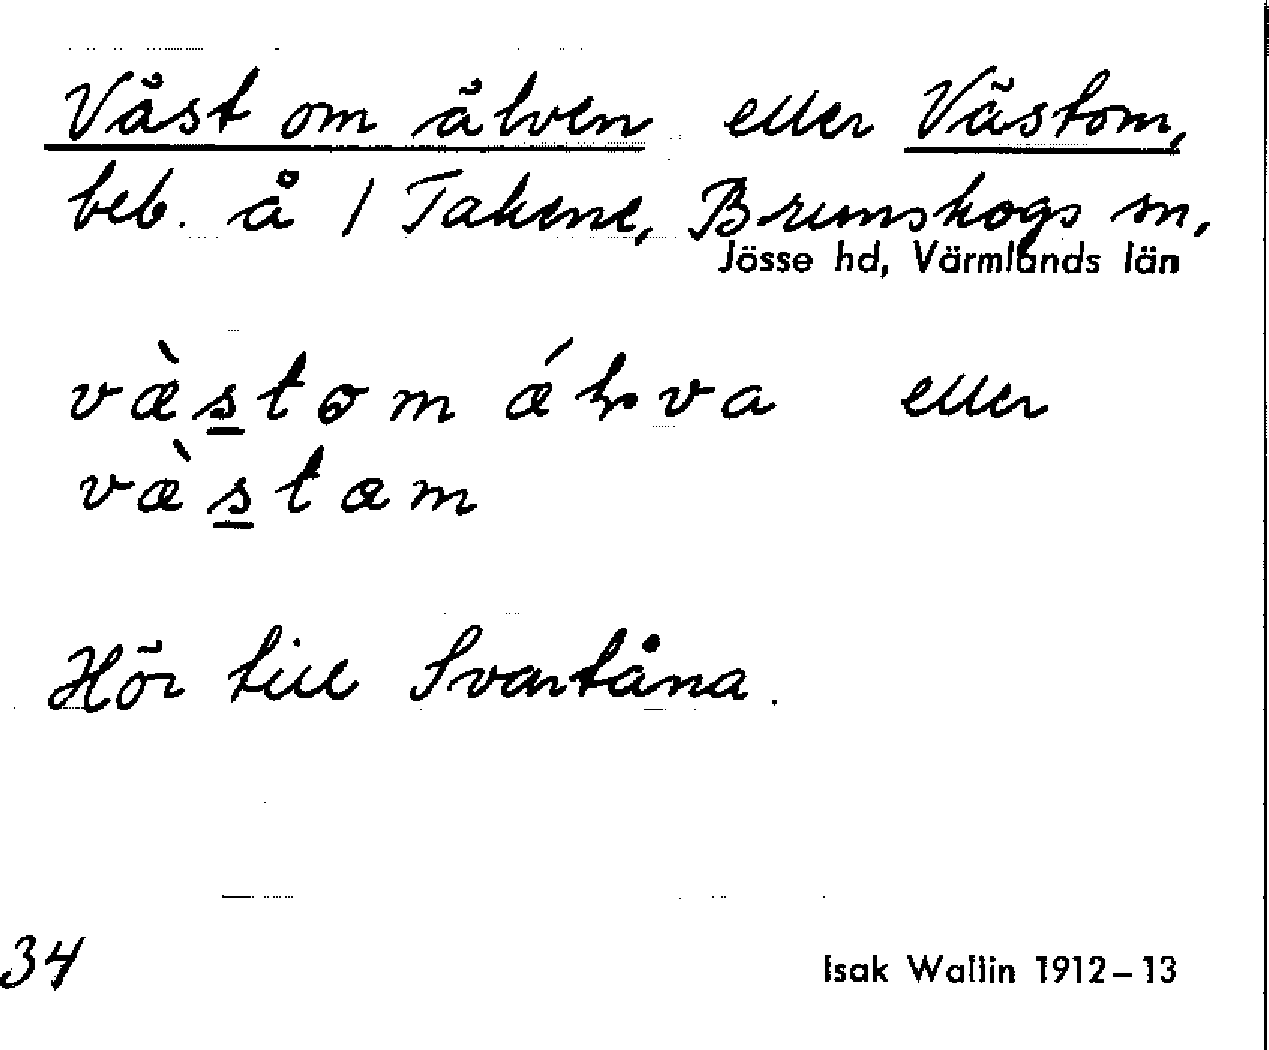 Väst om älven eller Västom,
beb. å 1 Takene, Brunskogs sn,
Jösse hd, Värmlands län
væ̀stom ǽɫva eller
væ̀stæm
Hör till Svartåna.
34
Isak Wallin 1912–13